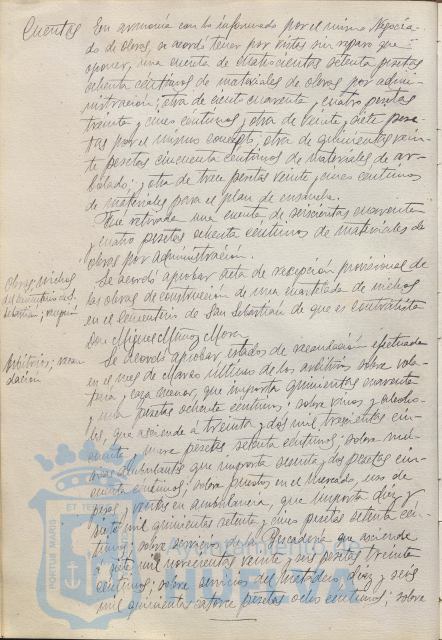 Cuentas En armonía con lo informado por el mismo Negocia-
do de obras, se acordó tener por vistas sin reparo que
oponer, una cuenta de cuatrocientas setenta pesetas
ochenta céntimos de materiales de obras por admi-
nistración; otra de ciento cuarenta y cuatro pesetas
treinta y cinco céntimos; otra de veinte y siete pese-
tas por el mismo concepto; otra de quinientas vein-
te pesetas cincuenta céntimos de materiales de ar-
bolado; y otra de trece pesetas veinte y cinco céntimos
de materiales para el plan de ensanche.
Fué retirada una cuenta de seiscientas cuarenta
y cuatro pesetas ochenta céntimos de materiales de
obras por administración.
Obras; nichos
del cementerio de S.
Sebastián; recepción
Se acordó aprobar acta de recepción provisional de
las obras de construcción de una cuartelada de nichos
en el Cementerio de San Sebastián de que es contratista
Don Miguel Muñoz Mora.
Arbitrios; recau-
dación
Se acordó aprobar estados de recaudación efectuada
en el mes de Marzo último de los arbitrios sobre vola-
tería y caza menor, que importa quinientas cuarenta
y una pesetas ochenta céntimos; sobre vinos y alcoho-
les, que asciende á treinta y dos mil trescientas cin-
cuenta y nueve pesetas setenta céntimos; sobre
ambulantes que importa sesenta y dos pesetas cin-
cuenta céntimos; sobre puestos en el Mercado, uso de
pesas y ventas en ambulancia, que importa diez y
siete mil quinientas setenta y cinco pesetas setenta cén-
timos; sobre servicios de la Pescadería que asciende
á siete mil novecientas veinte y seis pesetas treinta
céntimos; sobre servicios del matadero, diez y seis
mil quinientas catorce pesetas ocho céntimos; sobre
PORTUS MARIS ET TE
Ayuntamiento
HUELVA